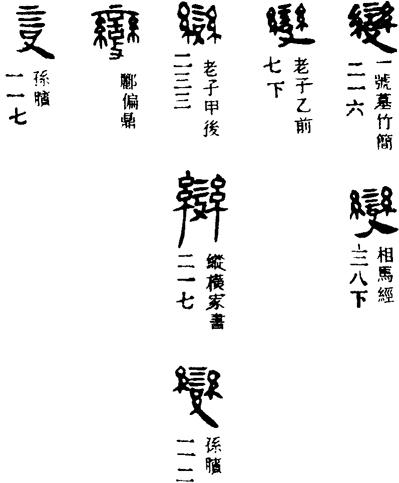 變
一號墓竹簡
二一六
變
相馬經
三八下
變
老子乙前
七下
變
老子甲後
二三三
變
縱橫家書
二一七
變
孫臏
酈偏鼎
孫臏
一一七